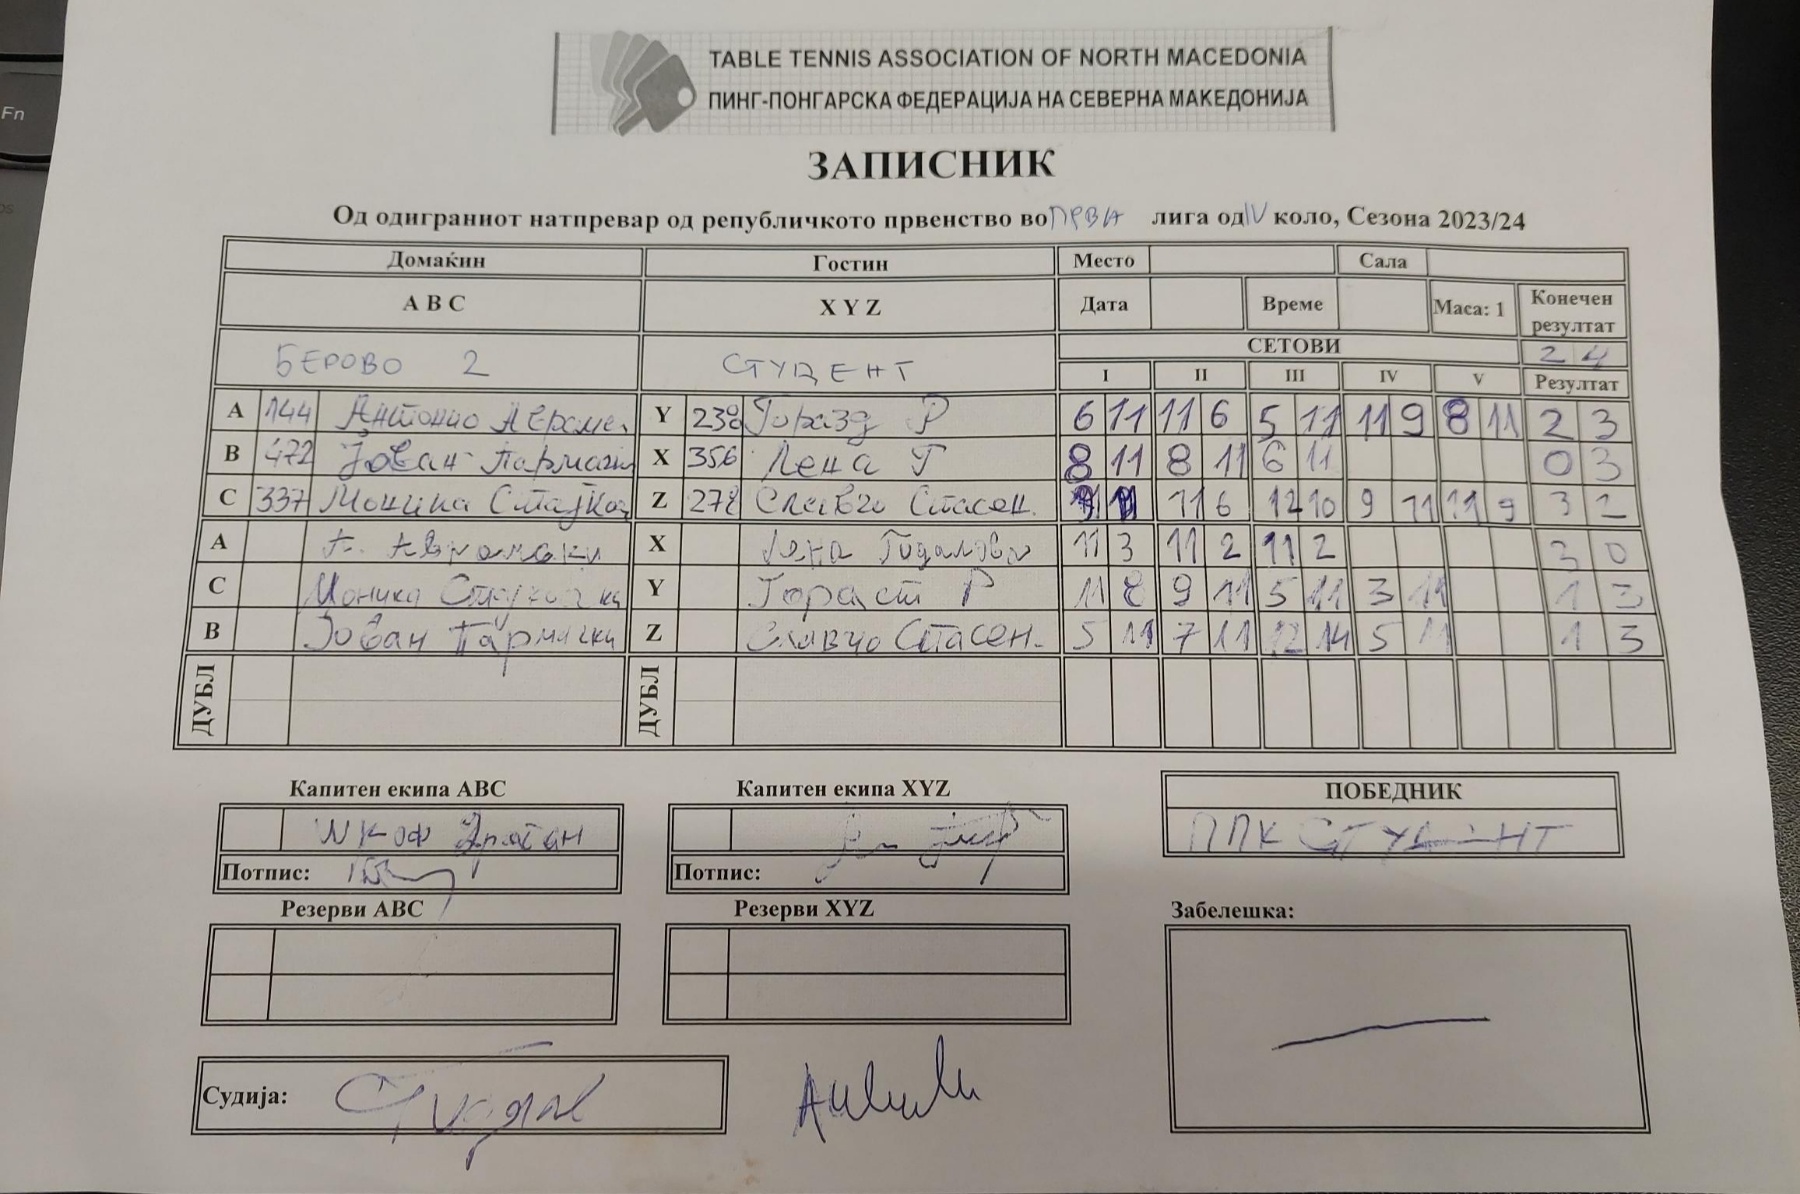 Fn
TABLE TENNIS ASSOCIATION OF NORTH MACEDONIA
ПИНГ-ПОНГАРСКА ФЕДЕРАЦИЈА НА СЕВЕРНА МАКЕДОНИЈА
ЗАПИСНИК
Од одиграниот натпревар од републичкото првенство во ПРВА лига од IV коло, Сезона 2023/24
Домаќин Гостин Место Сала
A B C X Y Z Дата Време Маса: 1 Конечен резултат
БЕРОВО 2 СТУДЕНТ СЕТОВИ 2 4
I II III IV V Резултат
A 144 Антонио Y 238 Горазд Р 6 11 11 6 5 11 11 9 8 11 2 3
B 472 Јован X 356 Лена Г 8 11 8 11 6 11 0 3
C 337 Моника Z 278 Славчо Стасен. 11 6 12 10 9 11 11 9 3 2
A А. X Лена 11 3 11 2 11 2 3 0
C Моника Y Р 11 8 9 11 5 11 3 11 1 3
B Јован Z Славчо Стасен. 5 11 7 11 12 14 5 11 1 3
ДУБЛ ДУБЛ
Капитен екипа ABC Капитен екипа XYZ ПОБЕДНИК
ППК СТУДЕНТ
Потпис: Потпис:
Резерви ABC Резерви XYZ Забелешка:
Судија: